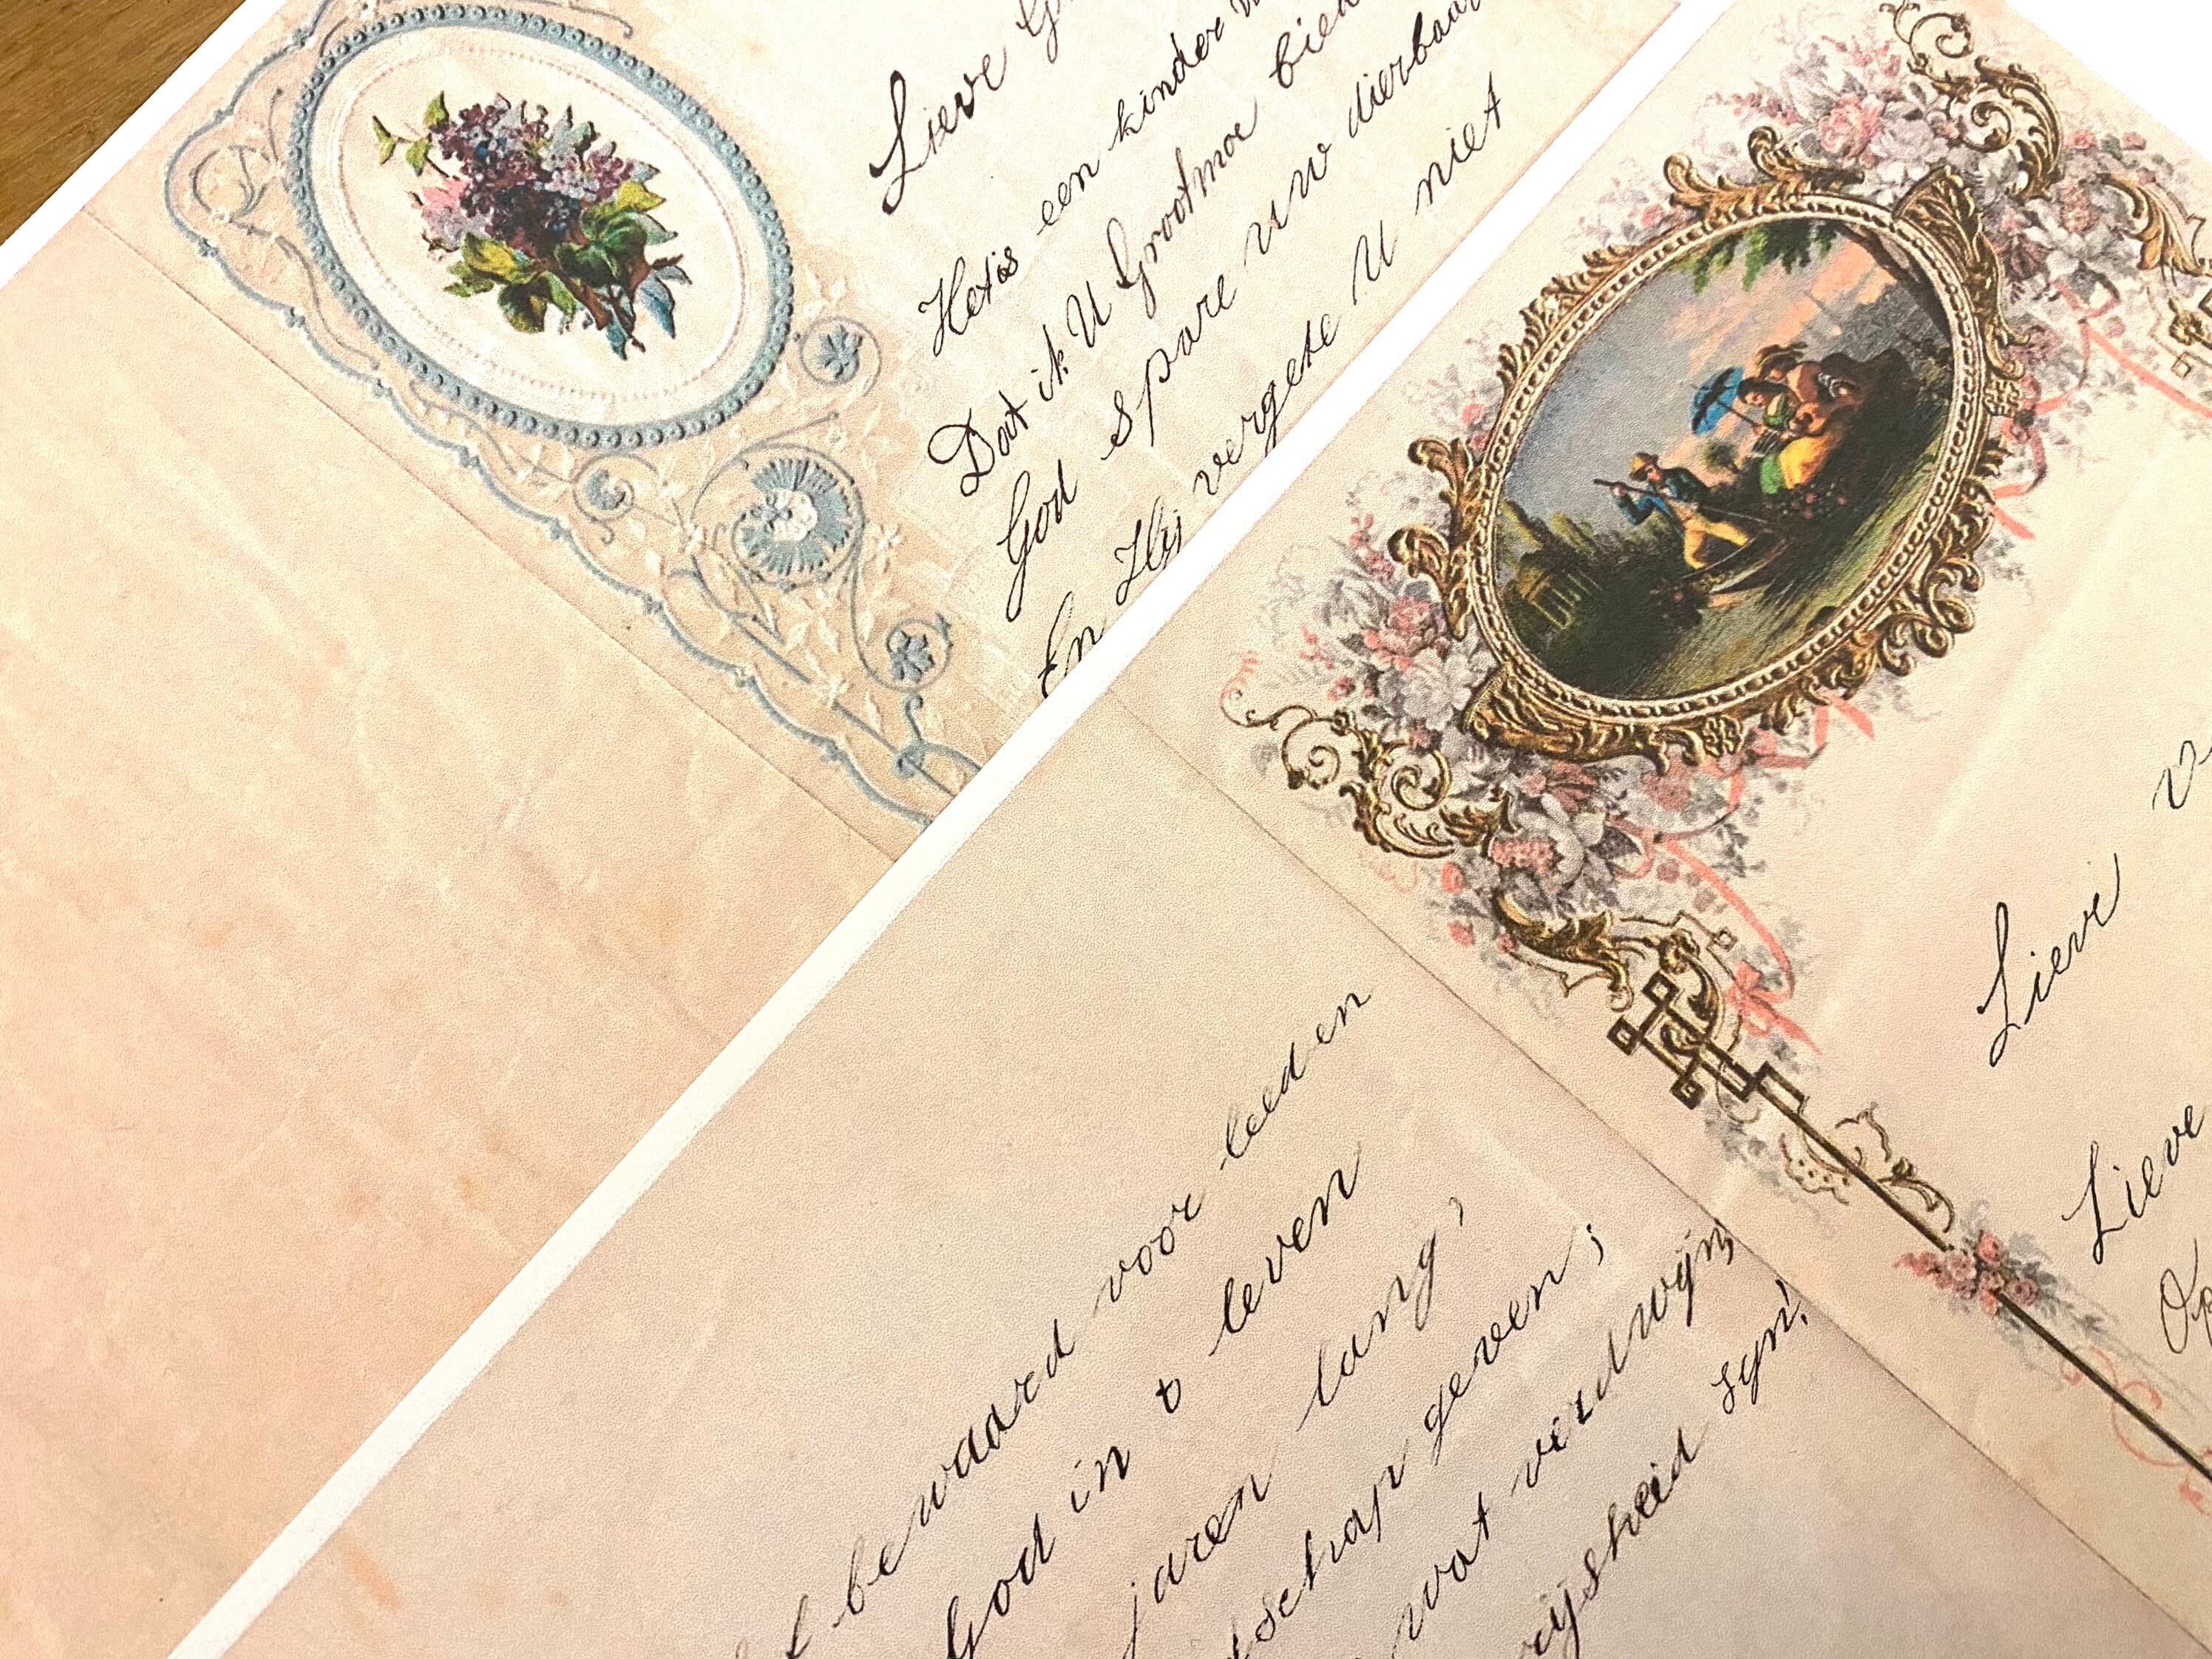 Lieve
Het is een kinder
Dat ik U Grootmoe
God spare uw dierbaar
En Hij vergete U niet
Lieve
Lieve
bewaard voor leed en
God in o leven
jaren lang,
schap geven;
wat verdwijn,
ijsheid zyn!